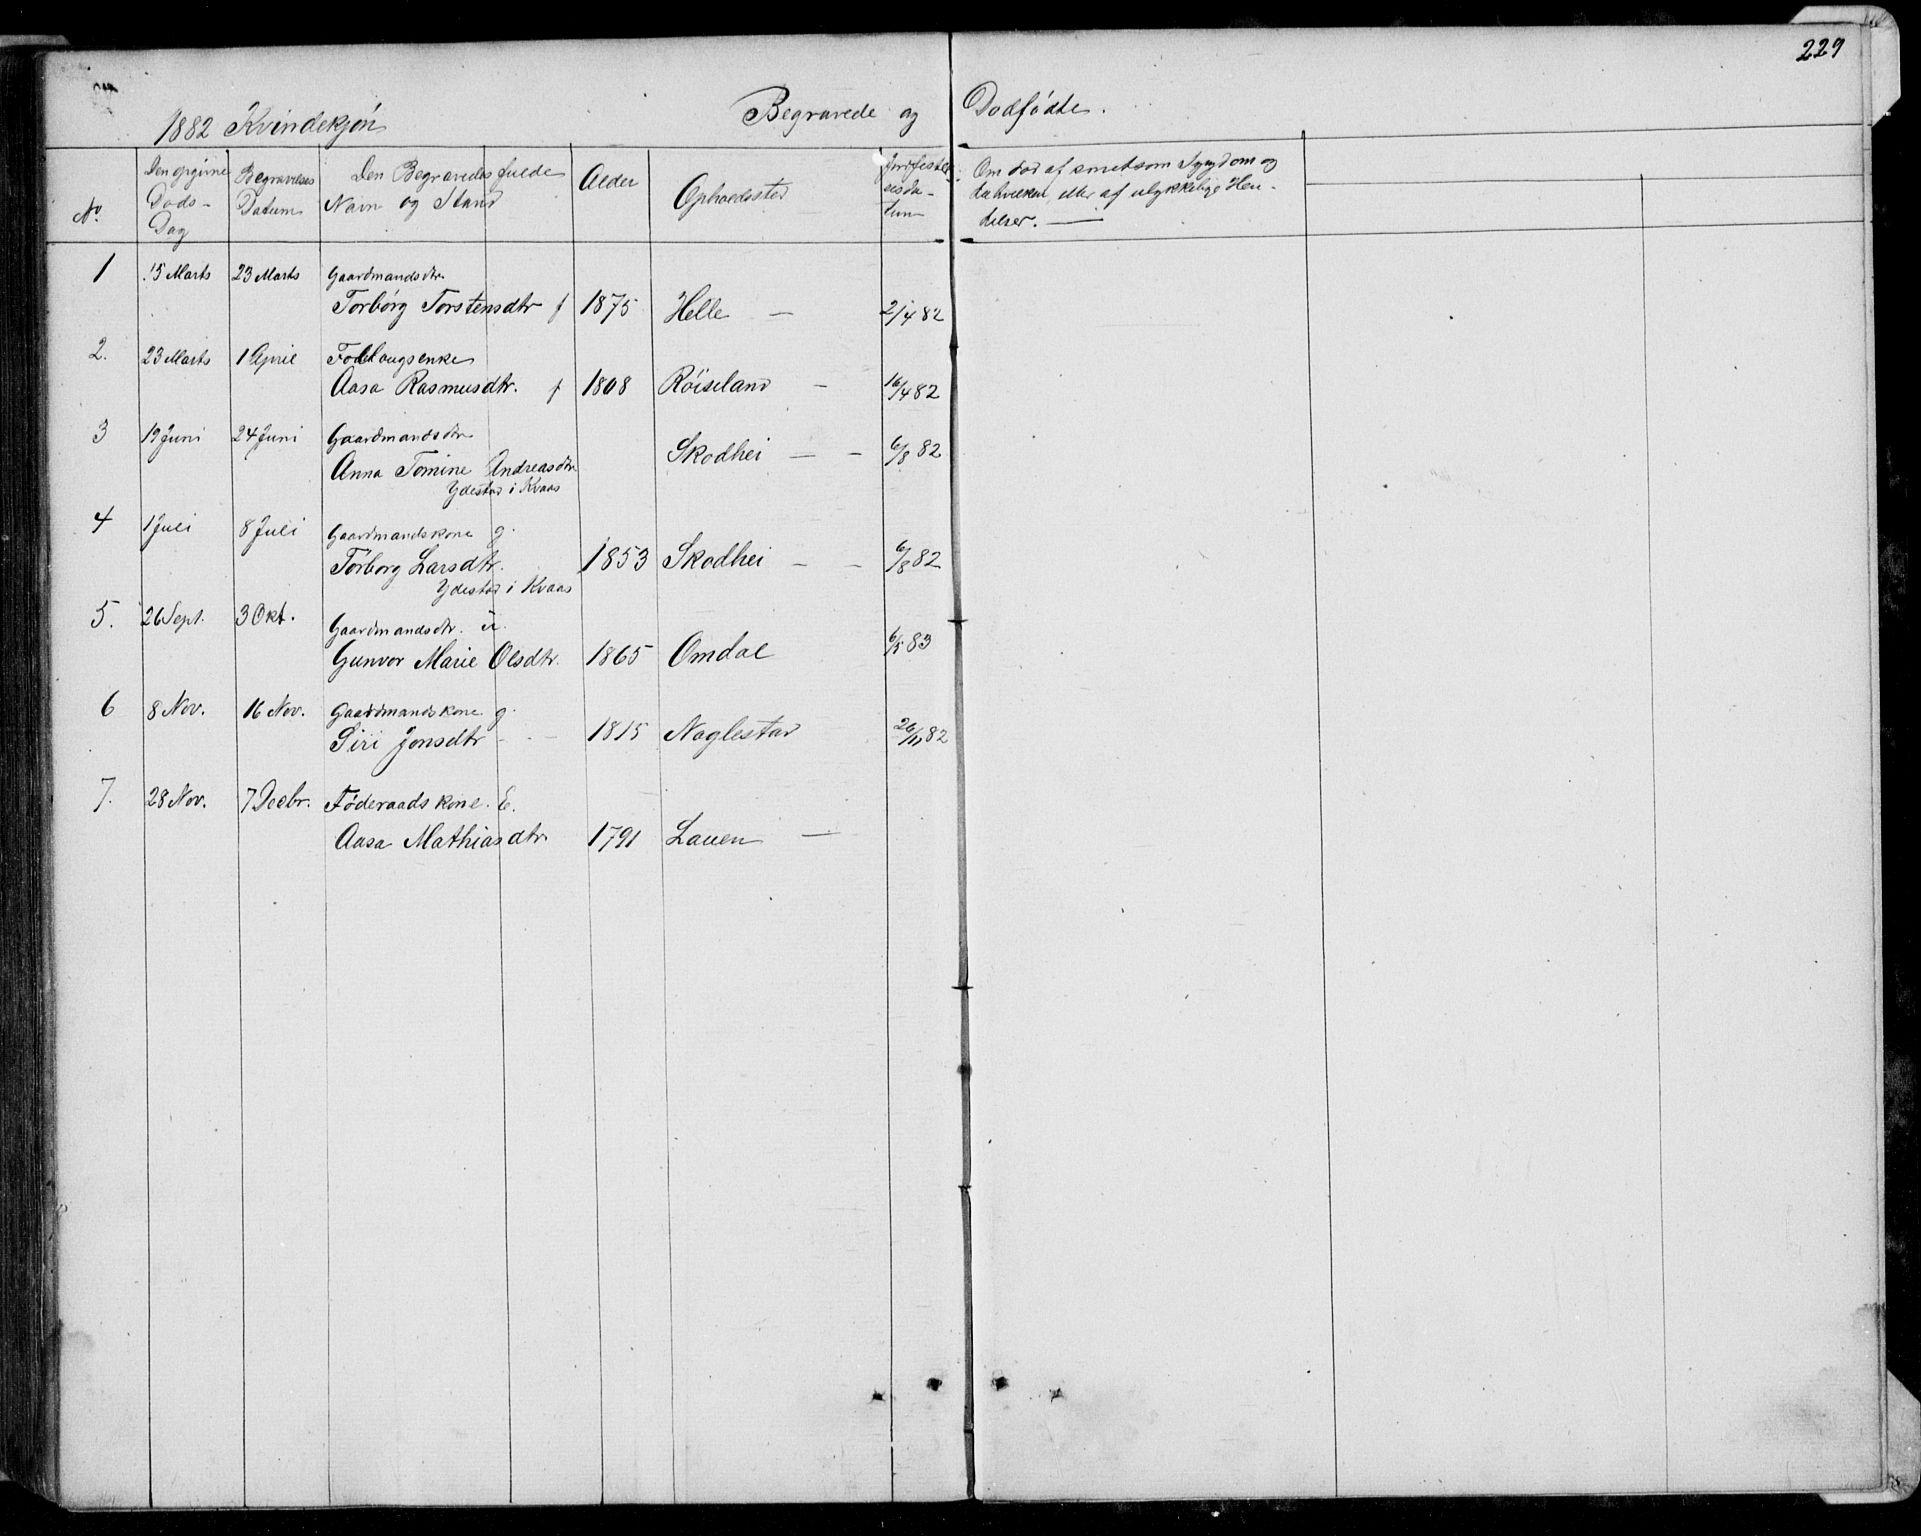 229
1882 Kvindekjøn Begravede og Dødfødte.
No. Den opgivne Døds-Dag Begravelses Datum Den Begravedes fulde Navn og Stand Alder Opholdssted Jordfestelsesdatum Om død af smitsom Sygdom og da hvilken, eller af ulykkelige Hændelser.
1 15 Marts 23 Marts Gaardmandsdtr.
Torbørg Torstensdtr f 1875 Helle — 2/4 82
2. 23 Marts 1 April
Aasa Rasmusdtr. f 1808 Røiseland — 16/4 82
3 19 Juni 24 Juni Gaardmandsdtr
Anna Tomine Andreasdtr Skodhei — — 6/8 82
Ydestad i Kvaas
4 1 Juli 8 Juli Gaardmandskone g.
Torborg Larsdtr. 1853 Skodhei — — 6/8 82
Ydestad i Kvaas
5. 26 Sept. 3 Okt. Gaardmandsdtr. u.
Gunvor Marie Olsdtr. 1865 Omdal 6/5 83
6 8 Nov. 16 Nov. Gaardmandskone g.
Siri Jonsdtr - - 1815 Naglestad 26/11 82
7. 28 Nov. 7 Decbr. Føderaadskone. E.
Aasa Mathiasdtr 1791 Lauen —